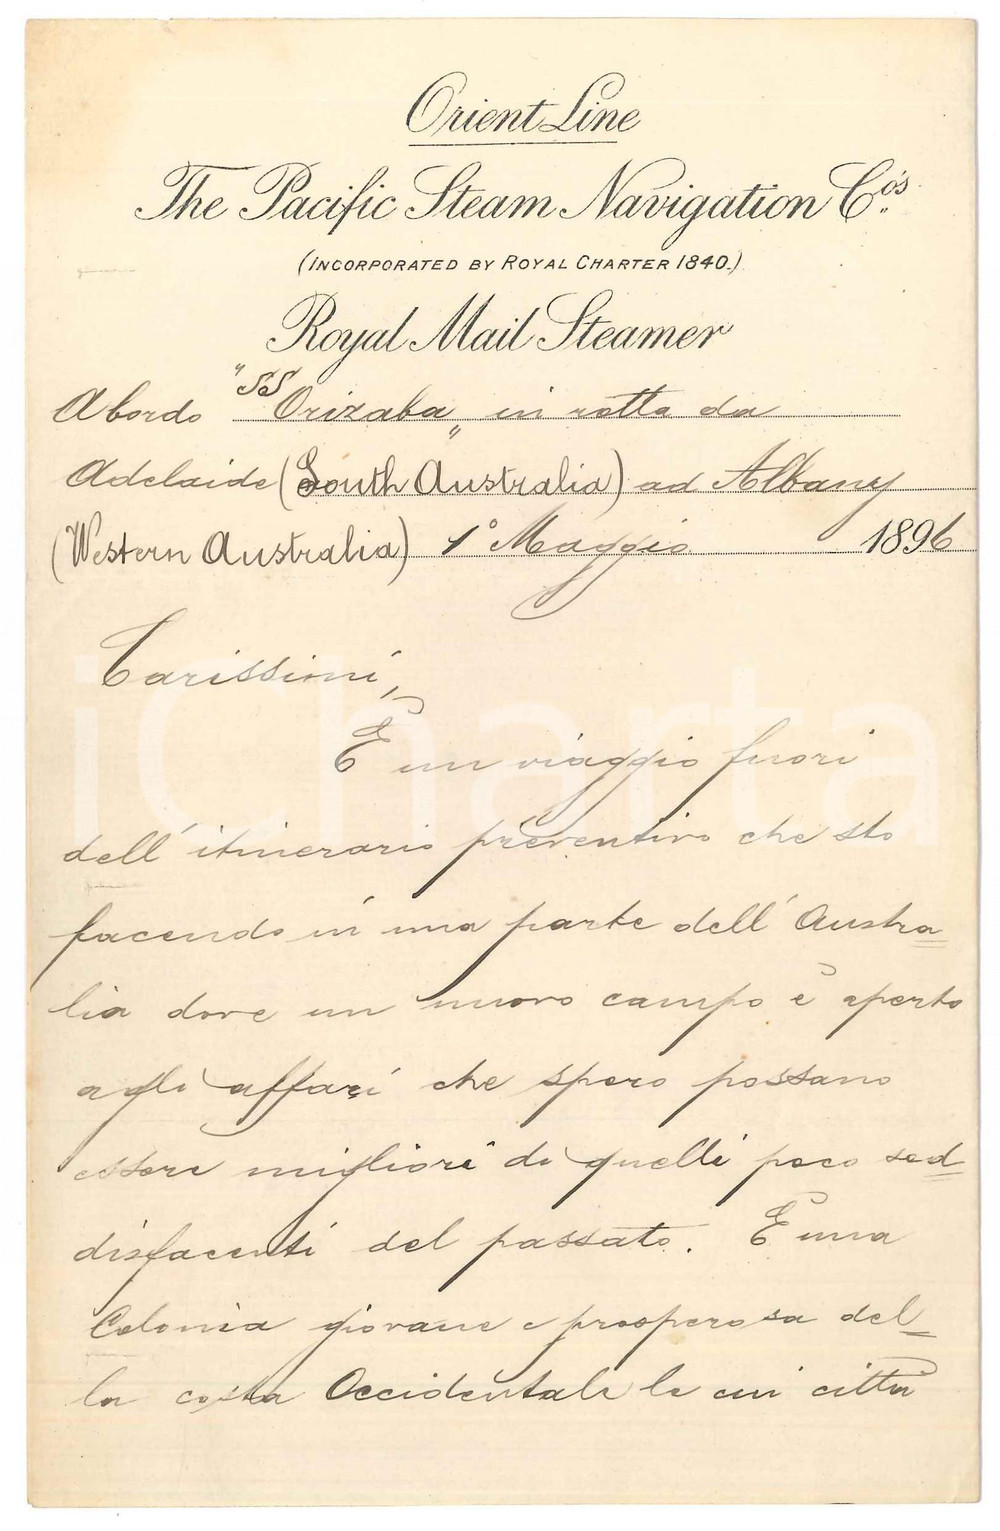 Orient Line
The Pacific Steam Navigation Co's.
(INCORPORATED BY ROYAL CHARTER 1840.)
Royal Mail Steamer
A bordo "SS Orizaba" in rotta da
Adelaide (South Australia) ad Albany
(Western Australia) 1° Maggio 1896
Carissimi,
È un viaggio fuori
dell'itinerario preventivo che sto
facendo in una parte dell'Austra=
lia dove un nuovo campo è aperto
agli affari che spero possano
essere migliori di quelli poco sod=
disfacenti del passato. È una
Colonia giovane e prosperosa del=
la costa Occidentale le cui città
iCharta